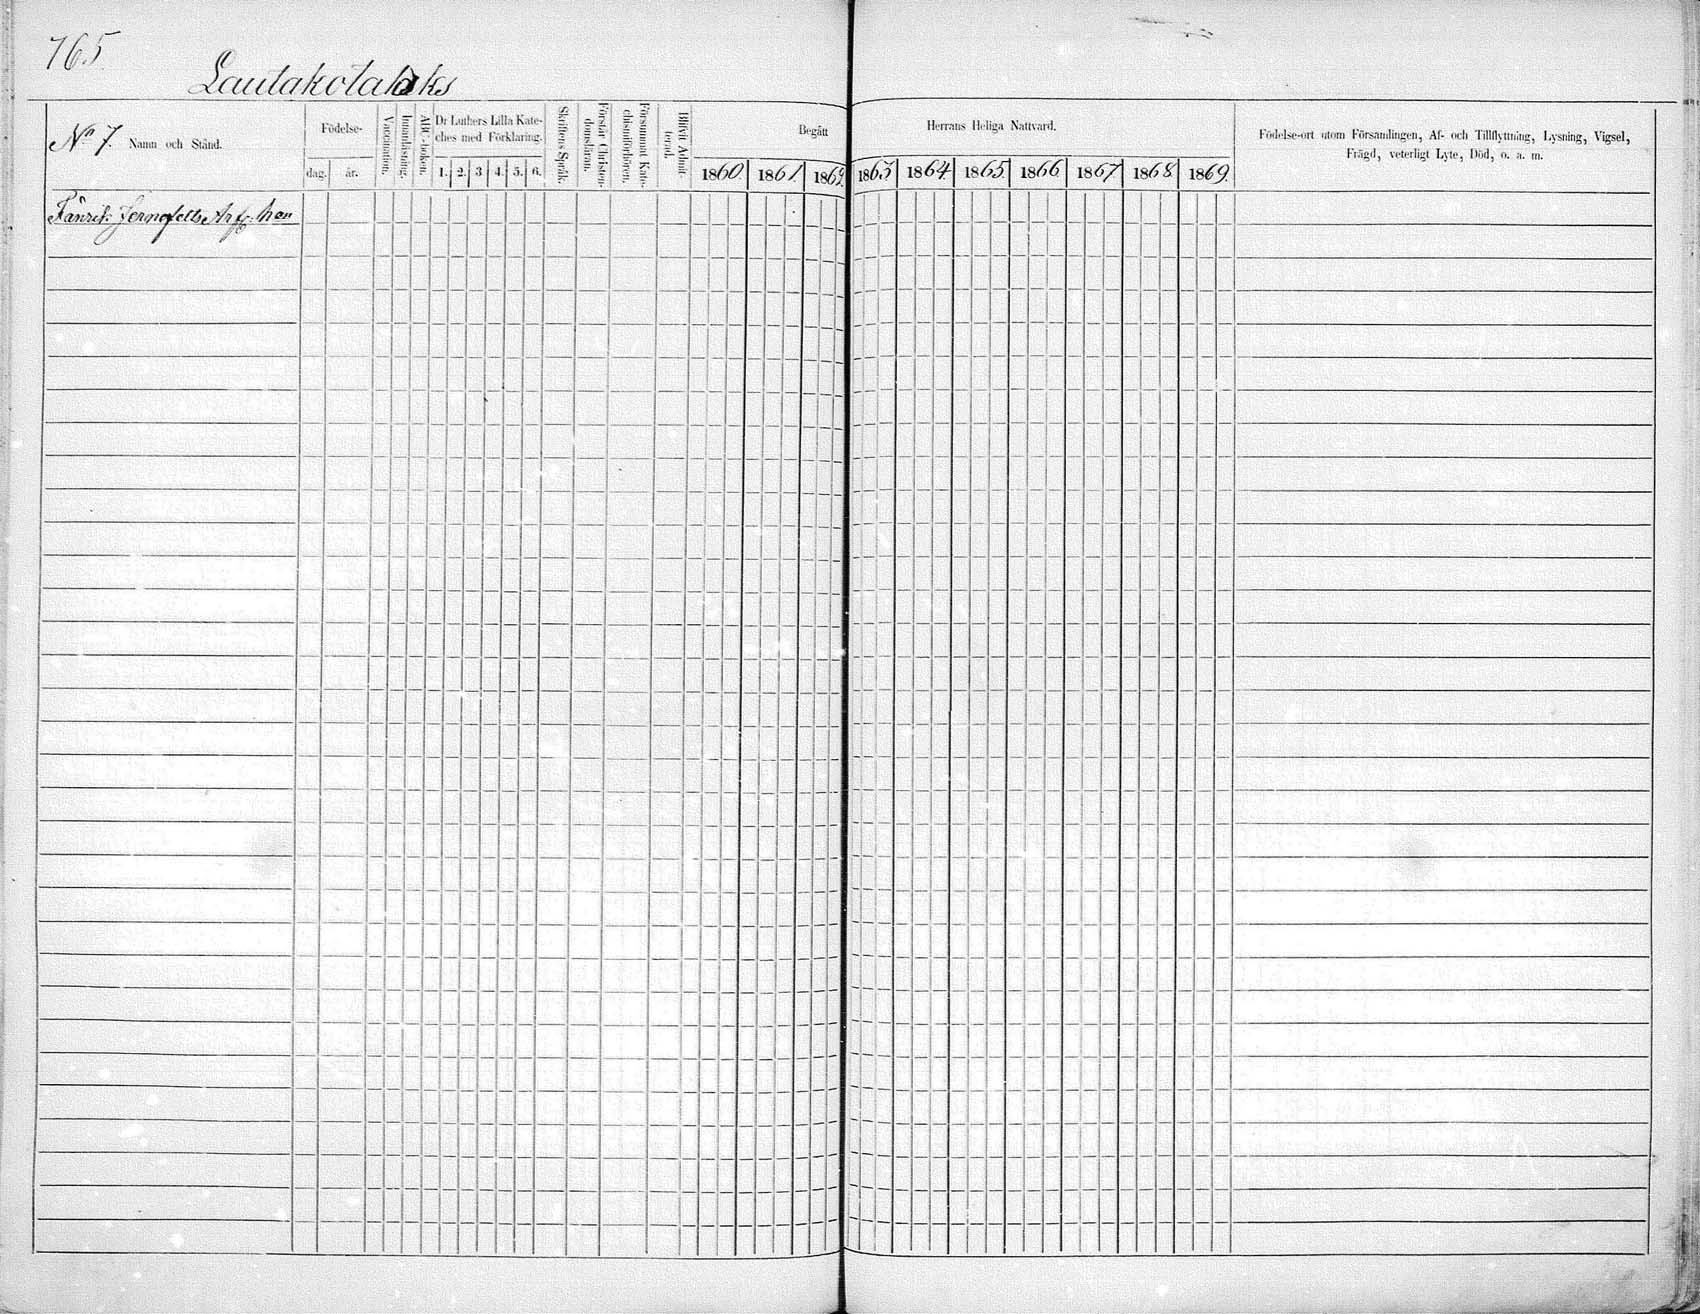 765
Lautakotalaks
No 7. Namn och Stånd.
Födelse-
dag. år.
Vaccination.
Innanläsning.
ABC-boken.
Dr Luthers Lilla Kate-
ches med Förklaring.
1. 2. 3 4. 5. 6.
Skriftens Språk.
Förstår Christen-
domsläran.
Försummat Kate-
chismiförhören.
Blifvit Admit-
terad.
Begått
Herrans Heliga Nattvard.
1860 1861 1862 1863 1864 1865 1866 1867 1868 1869.
Födelse-ort utom Församlingen, Af- och Tillflyttning, Lysning, Vigsel,
Frägd, veterligt Lyte, Död, o. a. m.
Fänrik Jernefelts